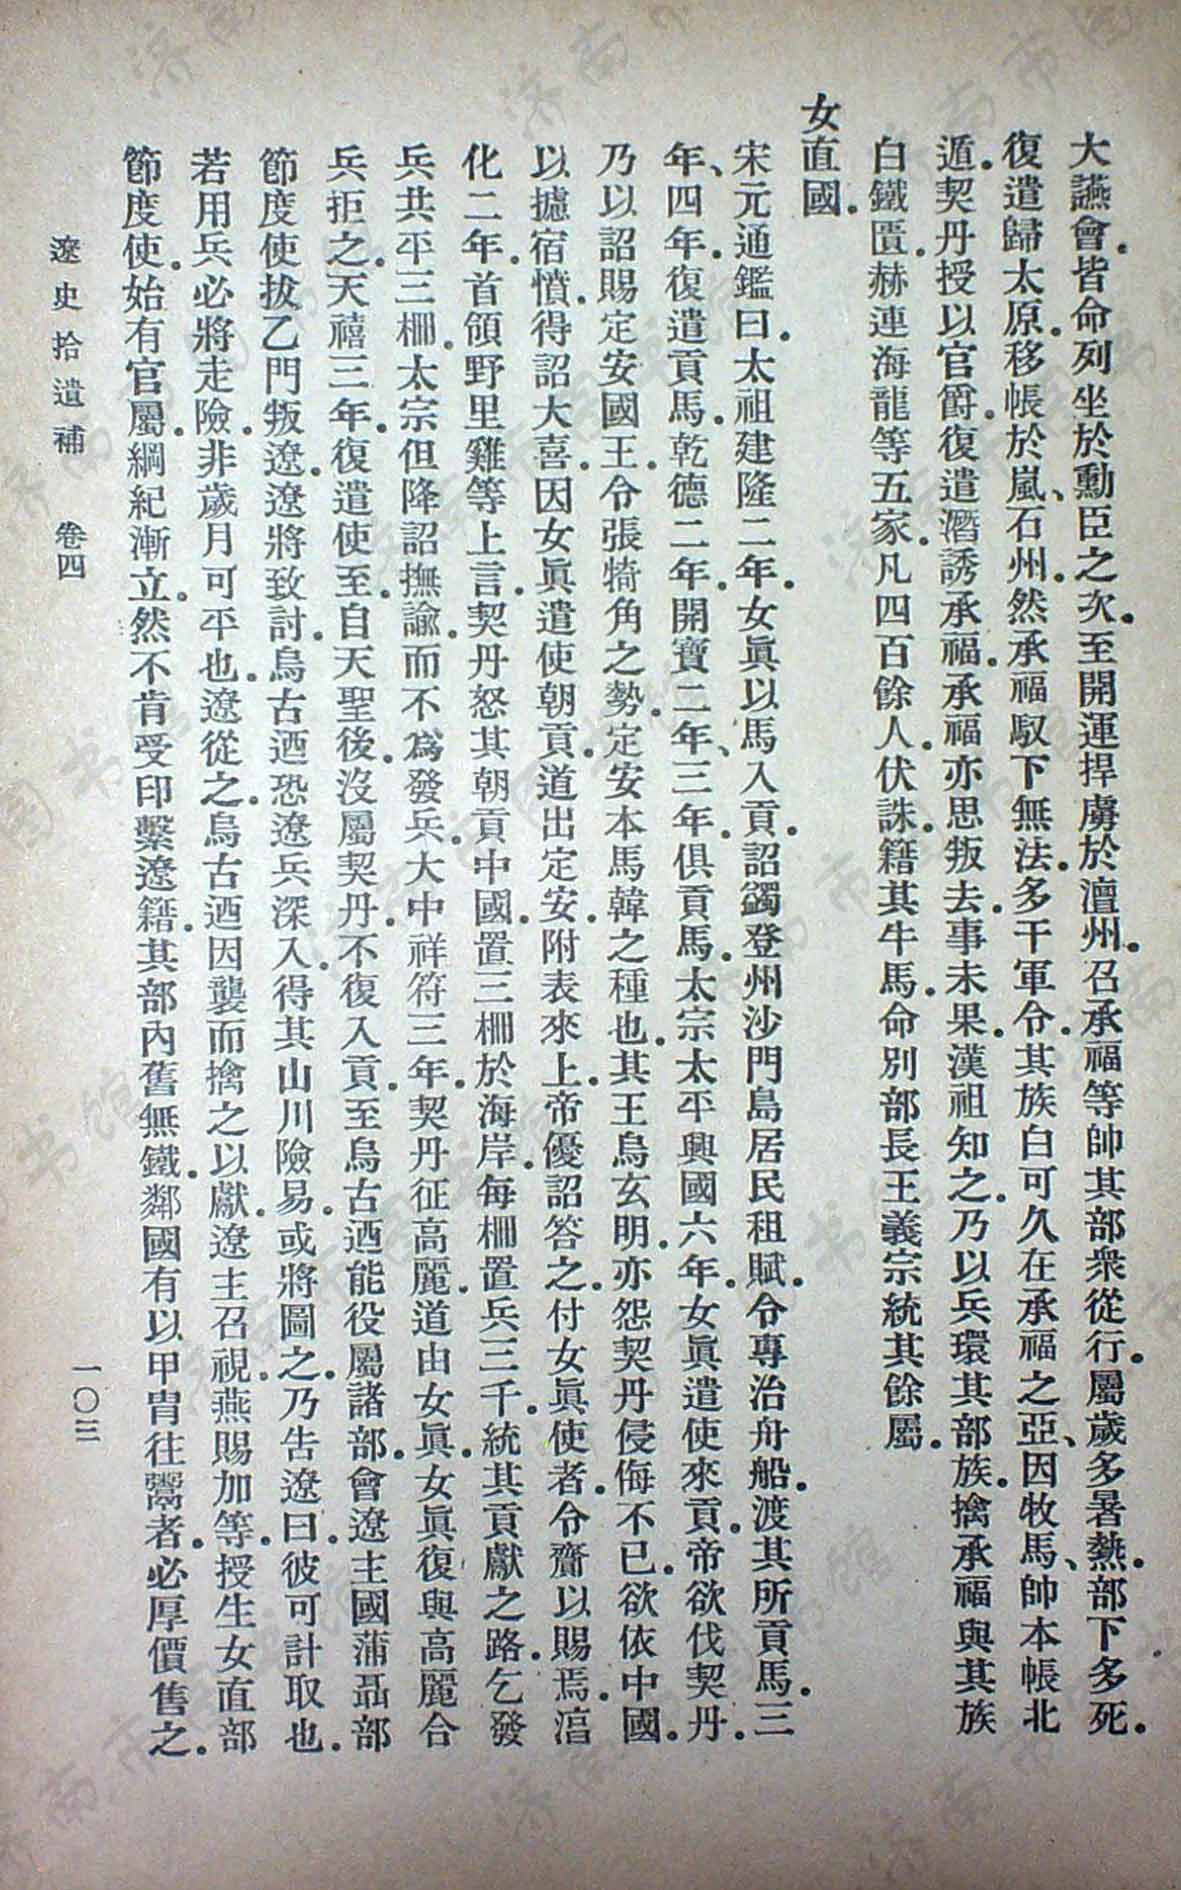 大讌會。皆命列坐於勳臣之次。至開運捍虜於澶州。召承福等帥其部衆從行。屬歲多暑熱。部下多死。
復遣歸太原。移帳於嵐、石州。然承福馭下無法。多干軍令。其族白可久在承福之亞、因牧馬、帥本帳北
遁。契丹授以官爵。復遣潛誘承福。承福亦思叛去。事未果。漢祖知之。乃以兵環其部族。擒承福與其族
白鐵匱。赫連海龍等五家。凡四百餘人。伏誅。籍其牛馬。命別部長王義宗統其餘屬。
女直國。
宋元通鑑曰。太祖建隆二年。女眞以馬入貢。詔蠲登州沙門島居民租賦。令專治舟船。渡其所貢馬。三
年、四年。復遣貢馬。乾德二年。開寶二年、三年。俱貢馬。太宗太平興國六年。女眞遣使來貢。帝欲伐契丹。
乃以詔賜定安國王。令張犄角之勢。定安本馬韓之種也。其王烏玄明。亦怨契丹侵侮不已。欲依中國。
以攄宿憤。得詔大喜。因女眞遣使朝貢。道出定安。附表來上。帝優詔答之。付女眞使者。令齎以賜焉。淯
化二年。首領野里雞等上言。契丹怒其朝貢中國。置三柵於海岸。每柵置兵三千。統其貢獻之路。乞發
兵共平三柵。太宗但降詔撫諭。而不爲發兵。大中祥符三年。契丹征高麗。道由女眞。女眞復與高麗合
兵拒之。天禧三年。復遣使至。自天聖後。沒屬契丹。不復入貢。至烏古迺能役屬諸部。會遼主國蒲聶部
節度使拔乙門叛遼。遼將致討。烏古迺恐遼兵深入。得其山川險易。或將圖之。乃告遼曰。彼可計取也。
若用兵必將走險。非歲月可平也。遼從之。烏古迺因襲而擒之以獻。遼主召視。燕賜加等。授生女直部
節度使。始有官屬。綱紀漸立。然不肯受印繫遼籍。其部內舊無鐵。鄰國有以甲冑往鬻者。必厚價售之。
遼史拾遺補 卷四 一〇三